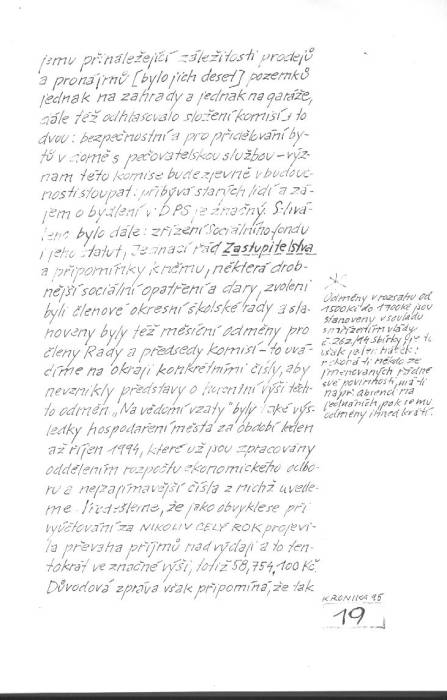 jemu přináležející záležitosti prodejů
a pronájmů [bylo jich deset] pozemků
jednak na zahrady a jednak na garáže,
dále též odhlasovalo složení komisí a to
dvou: bezpečnostní a pro přidělování by-
tů v domě s pečovatelskou službou – výz-
nam této komise bude zjevně v budouc-
nosti stoupat: přibývá starých lidí a zá-
jem o bydlení v DPS je značný. Schvá-
leno bylo dále: zřízení Sociálního fondu
i jeho statut, Jednací řád Zastupitelstva
a připomínky k němu, některá drob-
nější sociální opatření a dary, zvoleni
byli členové okresní školské rady a sta-
noveny byly též měsíční odměny pro
členy Rady a předsedy komisí – to uvá-
díme na okraji konkrétními čísly, aby
nevznikly představy o horentní výši těch-
to odměn. „Na vědomí vzaty" byly také výs-
ledky hospodaření města za období leden
až říjen 1994, které už jsou zpracovány
oddělením rozpočtu ekonomického odbo-
ru a nejzajímavější čísla z nichž uvede-
me. Předešleme, že jako obvykle se při
vyúčtování za NIKOLIV CELÝ ROK projevi-
la převaha příjmů nad výdaji a to ten-
tokrát ve značné výši, totiž 58,754.100 Kč.
Důvodová zpráva však připomíná, že tak
Odměny v rozsahu od
1500Kč do 1900Kč jsou
stanoveny v souladu
s nařízením vlády
č. 262/94 sbírky. Je tu
však jeden háček:
nekoná-li někdo ze
jmenovaných řádně
své povinnosti, má-li
např. absenci na
jednáních, pak se mu
odměny ihned krátí.
KRONIKA 95
19